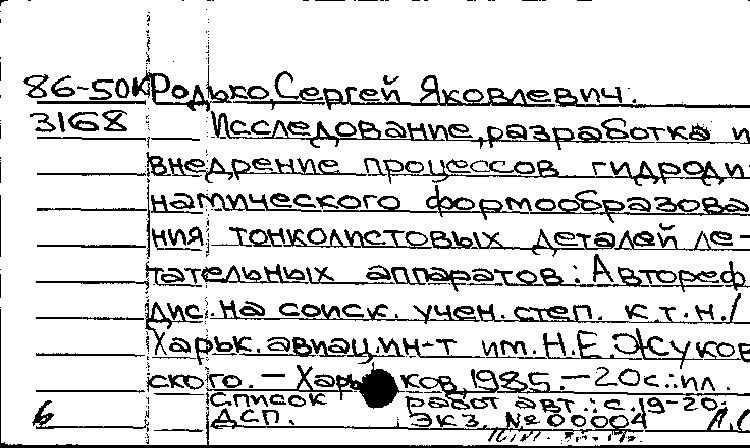 86-50К Родько, Сергей Яковлевич.
3168 Исследование, разработка и
внедрение процессов гидроди
намического формообразова
ния тонколистовых деталей ле-
тательных аппаратов: Автореф
дис. на соиск. учен. степ. к.т.н./
Харьк. авиац. ин-т им. Н.Е. Жуков
ского. – Харьков, 1985. – 20с.: ил.
Список работ авт.: с. 19-20.
ДСП. Экз. № 00004